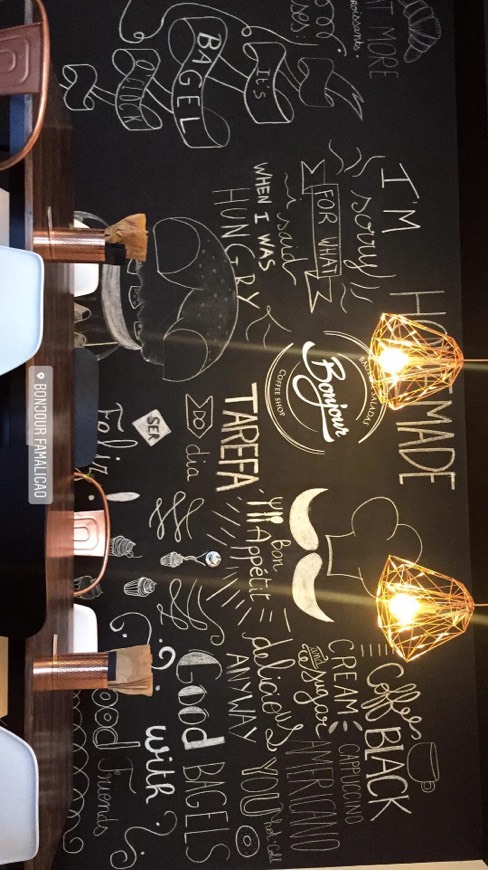 EAT MORE
croissants.
It's
BAGEL
I'M
sorry
FOR WHAT
I said
WHEN I WAS
HUNGRY
HOMEMADE
Bonjour
COFFEE SHOP
TAREFA
DO dia
SER
Feliz
Bon
Appétit
Coffee BLACK
CREAM
and sugar
CAPPUCCINO
AMERICANO
delicious
ANYWAY
YOU
Good BAGELS
with
Good Friends
BONJOUR FAMALICAO